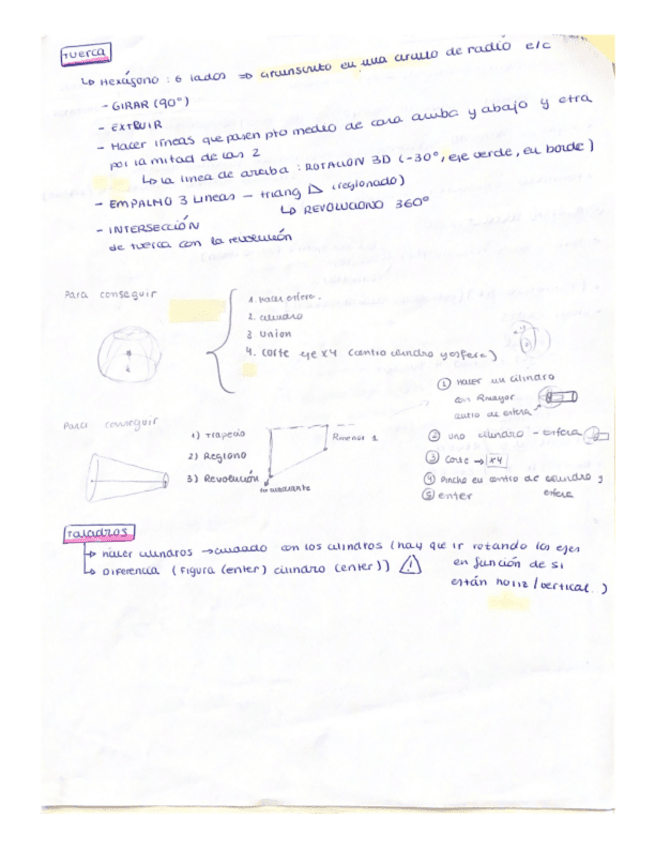 TUERCA
↳ Hexágono : 6 lados ⇒ circunscrito en una circulo de radio e/c
- GIRAR (90°)
- EXTRUIR
- Hacer líneas que pasen pto medio de cara arriba y abajo y otra
por la mitad de las 2
↳ la linea de arriba : ROTACION 3D (-30°, eje verde, en borde)
- EMPALMO 3 Lineas - triang (regionado)
↳ REVOLUCIONO 360°
- INTERSECCIÓN
de tuerca con la revolución
Para conseguir
1. Hacer esfera.
2. cilindro
3 Union
4. Corte eje x4 (centro cilindro y esfera)
① Hacer un cilindro
con Rmayor
dentro de esfera
② uno cilindro - esfera
③ Corte → x4
④ Pincho en centro de cilindro y
esfera
⑤ enter
Para conseguir
1) Trapecio
2) Regiono
3) Revolución
Rmenor
cuadrante
Taladros
↳ Hacer cilindros → cuidado con los cilindros (hay que ir rotando los ejes
en función de si
están horiz/vertical.)
↳ Diferencia (Figura (enter) cilindro (enter)) ⚠